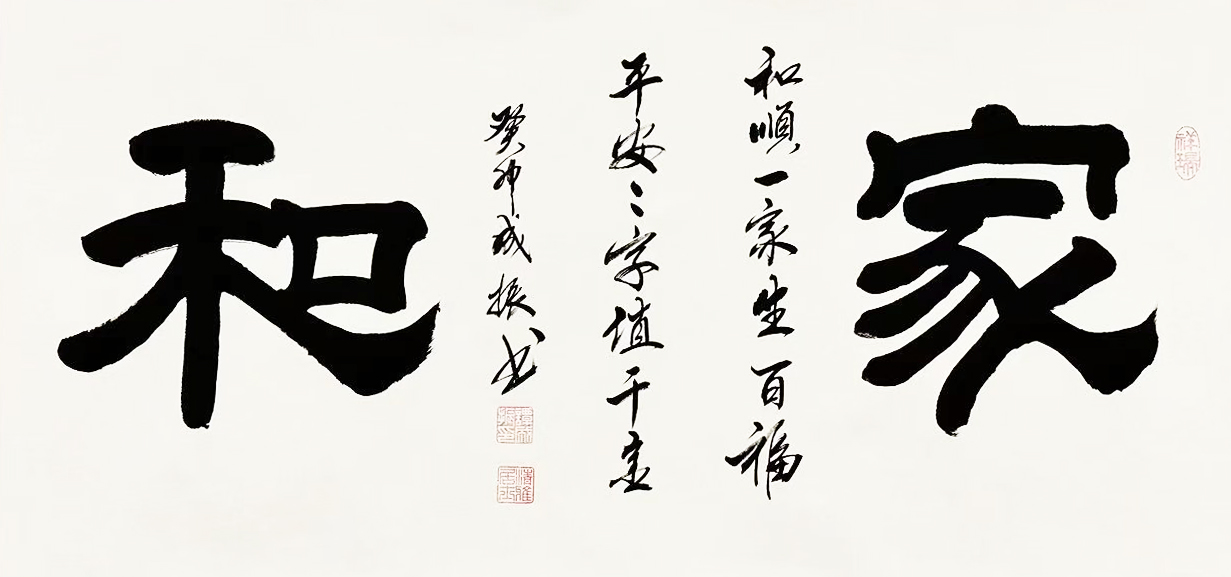 家
和順一家生百福
平安二字值千金
和
癸卯成振书